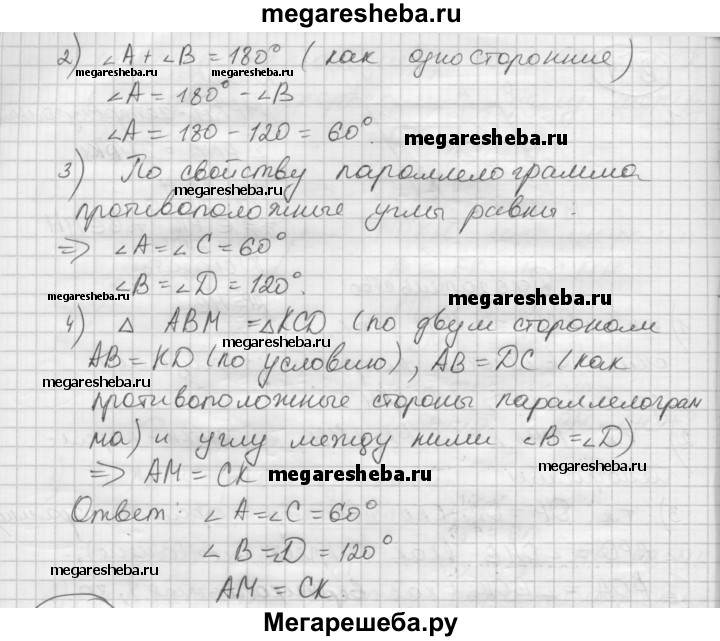 megaresheba.ru
2) ∠A + ∠B = 180° (как односторонние)
megaresheba.ru megaresheba.ru
∠A = 180° - ∠B
∠A = 180 - 120 = 60°. megaresheba.ru
3) По свойству параллелограмма
megaresheba.ru
противоположные углы равны.
=> ∠A = ∠C = 60°
∠B = ∠D = 120°.
megaresheba.ru megaresheba.ru
4) △ ABM = △KCD (по двум сторонам
megaresheba.ru
AB = KD (по условию), AB = DC (как
megaresheba.ru
противоположные стороны параллелограм
ма) и углу между ними ∠B = ∠D)
megaresheba.ru
=> AM = CK megaresheba.ru
Ответ: ∠A = ∠C = 60°
∠B = ∠D = 120°
megaresheba.ru megaresheba.ru
AM = CK.
Мегарешеба.ру